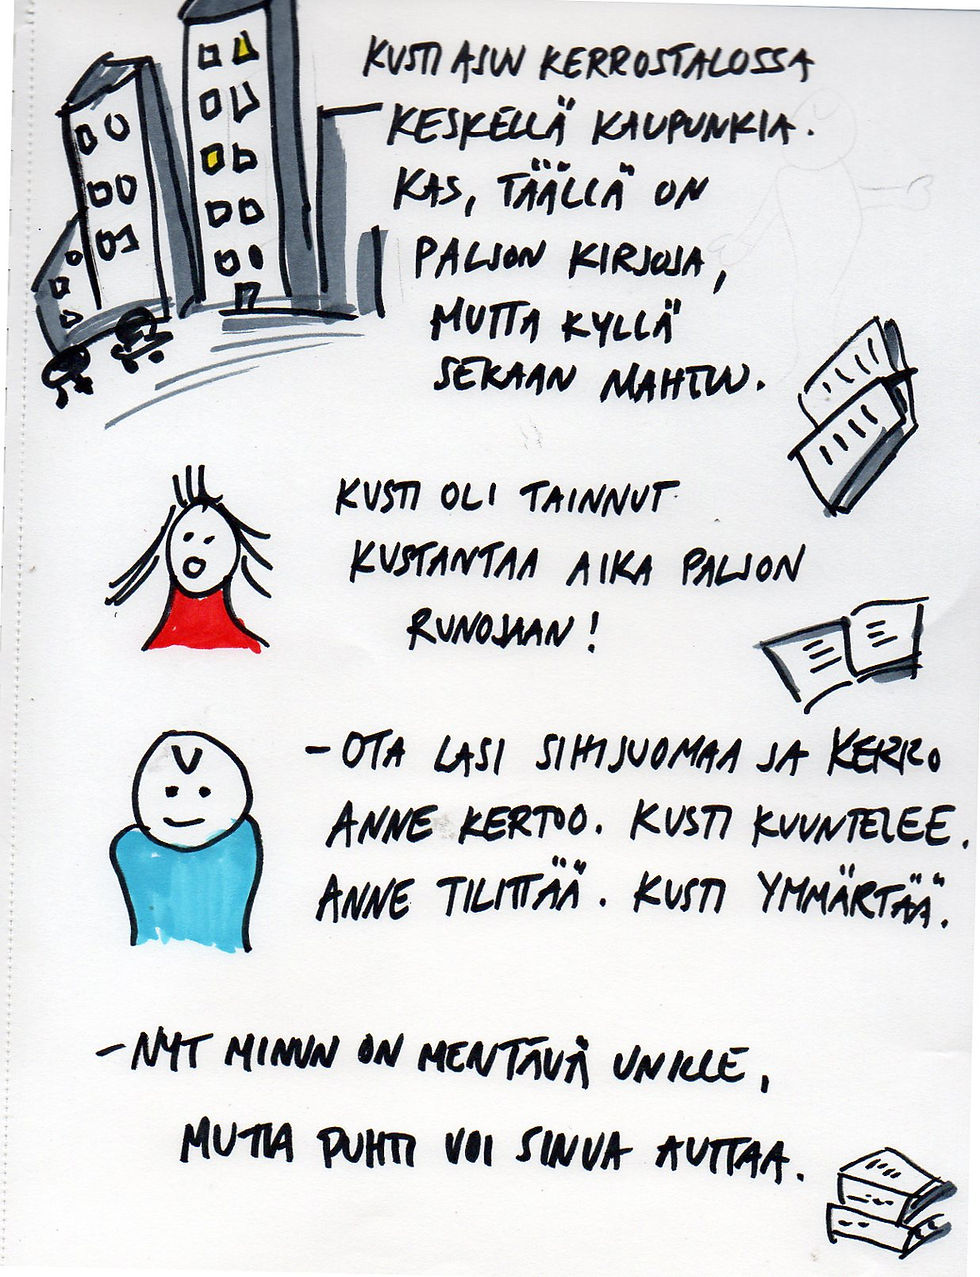 KUSTI ASUU KERROSTALOSSA
KESKELLÄ KAUPUNKIA.
KAS, TÄÄLLÄ ON
PALJON KIRJOJA,
MUTTA KYLLÄ
SEKAAN MAHTUU.
KUSTI OLI TAINNUT
KUSTANTAA AIKA PALJON
RUNOJAAN!
- OTA LASI SIHIJUOMAA JA KERRO
ANNE KERTOO. KUSTI KUUNTELEE.
ANNE TILITTÄÄ. KUSTI YMMÄRTÄÄ.
- NYT MINUN ON MENTÄVÄ UNILLE,
MUTTA PUHTI VOI SINUA AUTTAA.